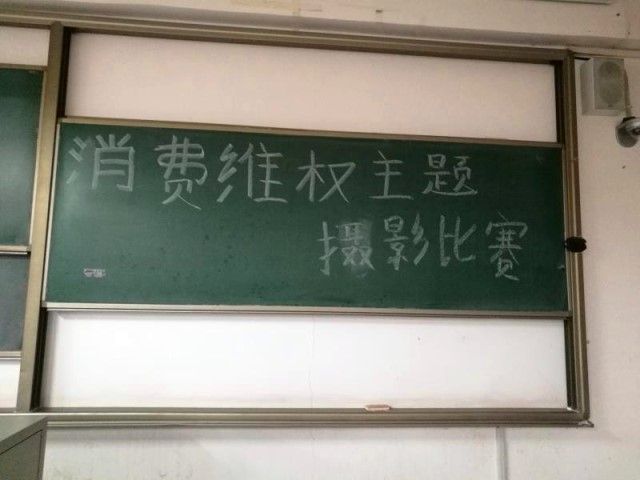 消费维权主题
摄影比赛